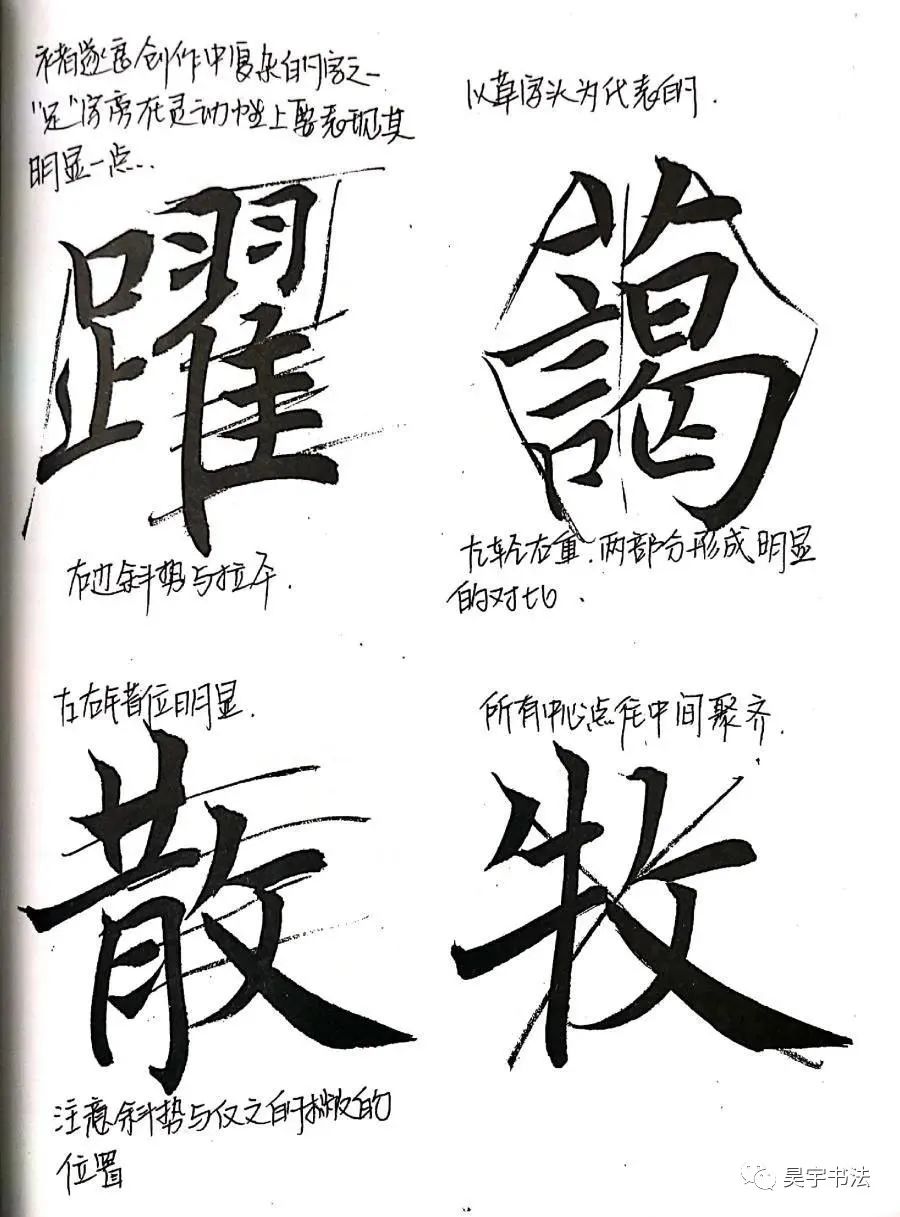 褚遂良创作中复杂的字之一
"足"字旁在灵动性上要表现其
明显一点..
以草字头为代表的.
躍
藹
右边斜势与拉开.
左轻右重.两部分形成明显
的对比.
左右错位明显.
所有中心点往中间聚齐.
散
牧
注意斜势与反文的撇捺的
位置
昊宇书法